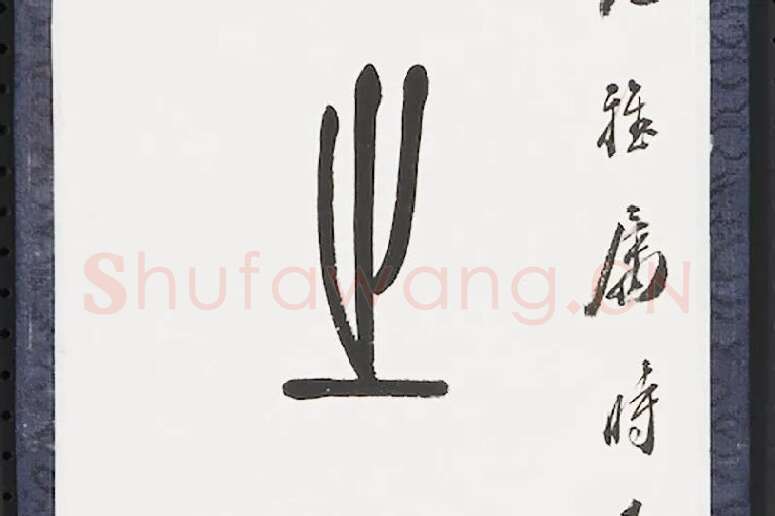 雅屬時
之
Shufawang.CN